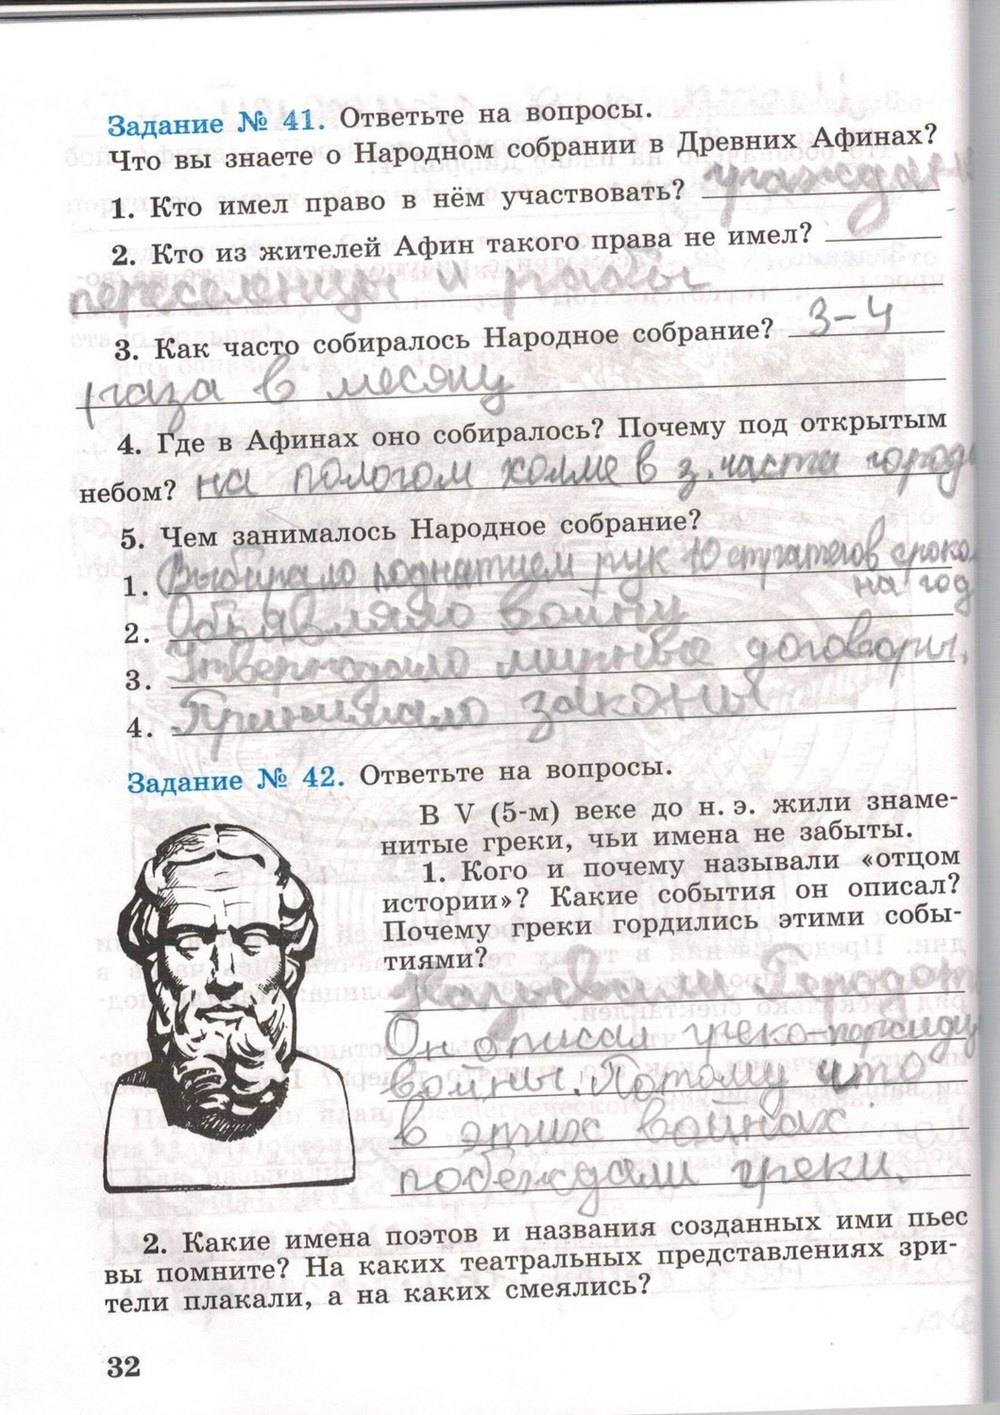 Задание № 41. Ответьте на вопросы.
Что вы знаете о Народном собрании в Древних Афинах?
1. Кто имел право в нём участвовать? граждане
2. Кто из жителей Афин такого права не имел?
переселенцы и рабы
3. Как часто собиралось Народное собрание? 3-4
раза в месяц
4. Где в Афинах оно собиралось? Почему под открытым
небом? на пологом холме в з. части города
5. Чем занималось Народное собрание?
1. Выбирало поднятием рук 10 стратегов сроком
на год
2. Объявляло войну
3. Утверждало мирные договоры.
4. Принимало законы
Задание № 42. Ответьте на вопросы.
В V (5-м) веке до н. э. жили знаме-
нитые греки, чьи имена не забыты.
1. Кого и почему называли «отцом
истории»? Какие события он описал?
Почему греки гордились этими собы-
тиями?
Называли Геродот
Он описал греко-персид
войны. Потому что
в этих войнах
побеждали греки.
2. Какие имена поэтов и названия созданных ими пьес
вы помните? На каких театральных представлениях зри-
тели плакали, а на каких смеялись?
32